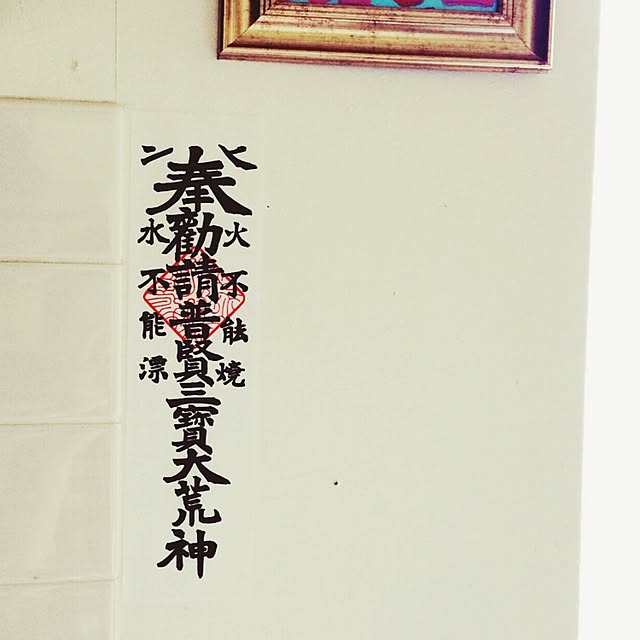 ヒ火不能焼
奉勸請普賢三寶大荒神
ン水不能漂